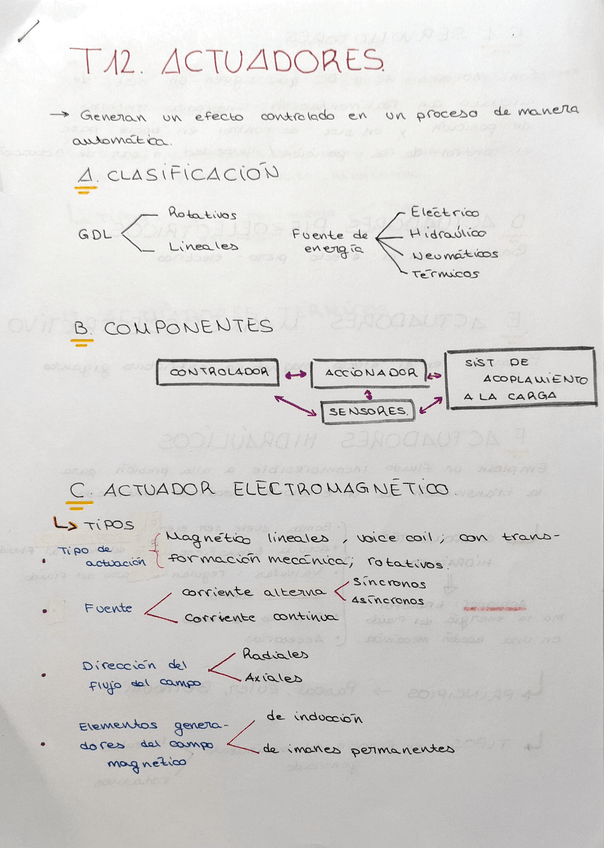 T12. ACTUADORES.
→ Generan un efecto controlado en un proceso de manera
automática.
A. CLASIFICACIÓN
GDL
Rotativos
Lineales
Fuente de
energía
Eléctrico
Hidraúlico
Neumáticos
Térmicos
B. COMPONENTES
CONTROLADOR
ACCIONADOR
SIST DE
ACOPLAMIENTO
A LA CARGA
SENSORES.
C. ACTUADOR ELECTROMAGNÉTICO.
↳ TIPOS
• Tipo de
actuación
Magnético lineales, voice coil; con trans-
formación mecánica; rotativos.
• Fuente
corriente alterna
Síncronos
Asíncronos
corriente continua
• Dirección del
flujo del campo
Radiales
Axiales
• Elementos genera-
dores del campo
magnético
de inducción
de imanes permanentes